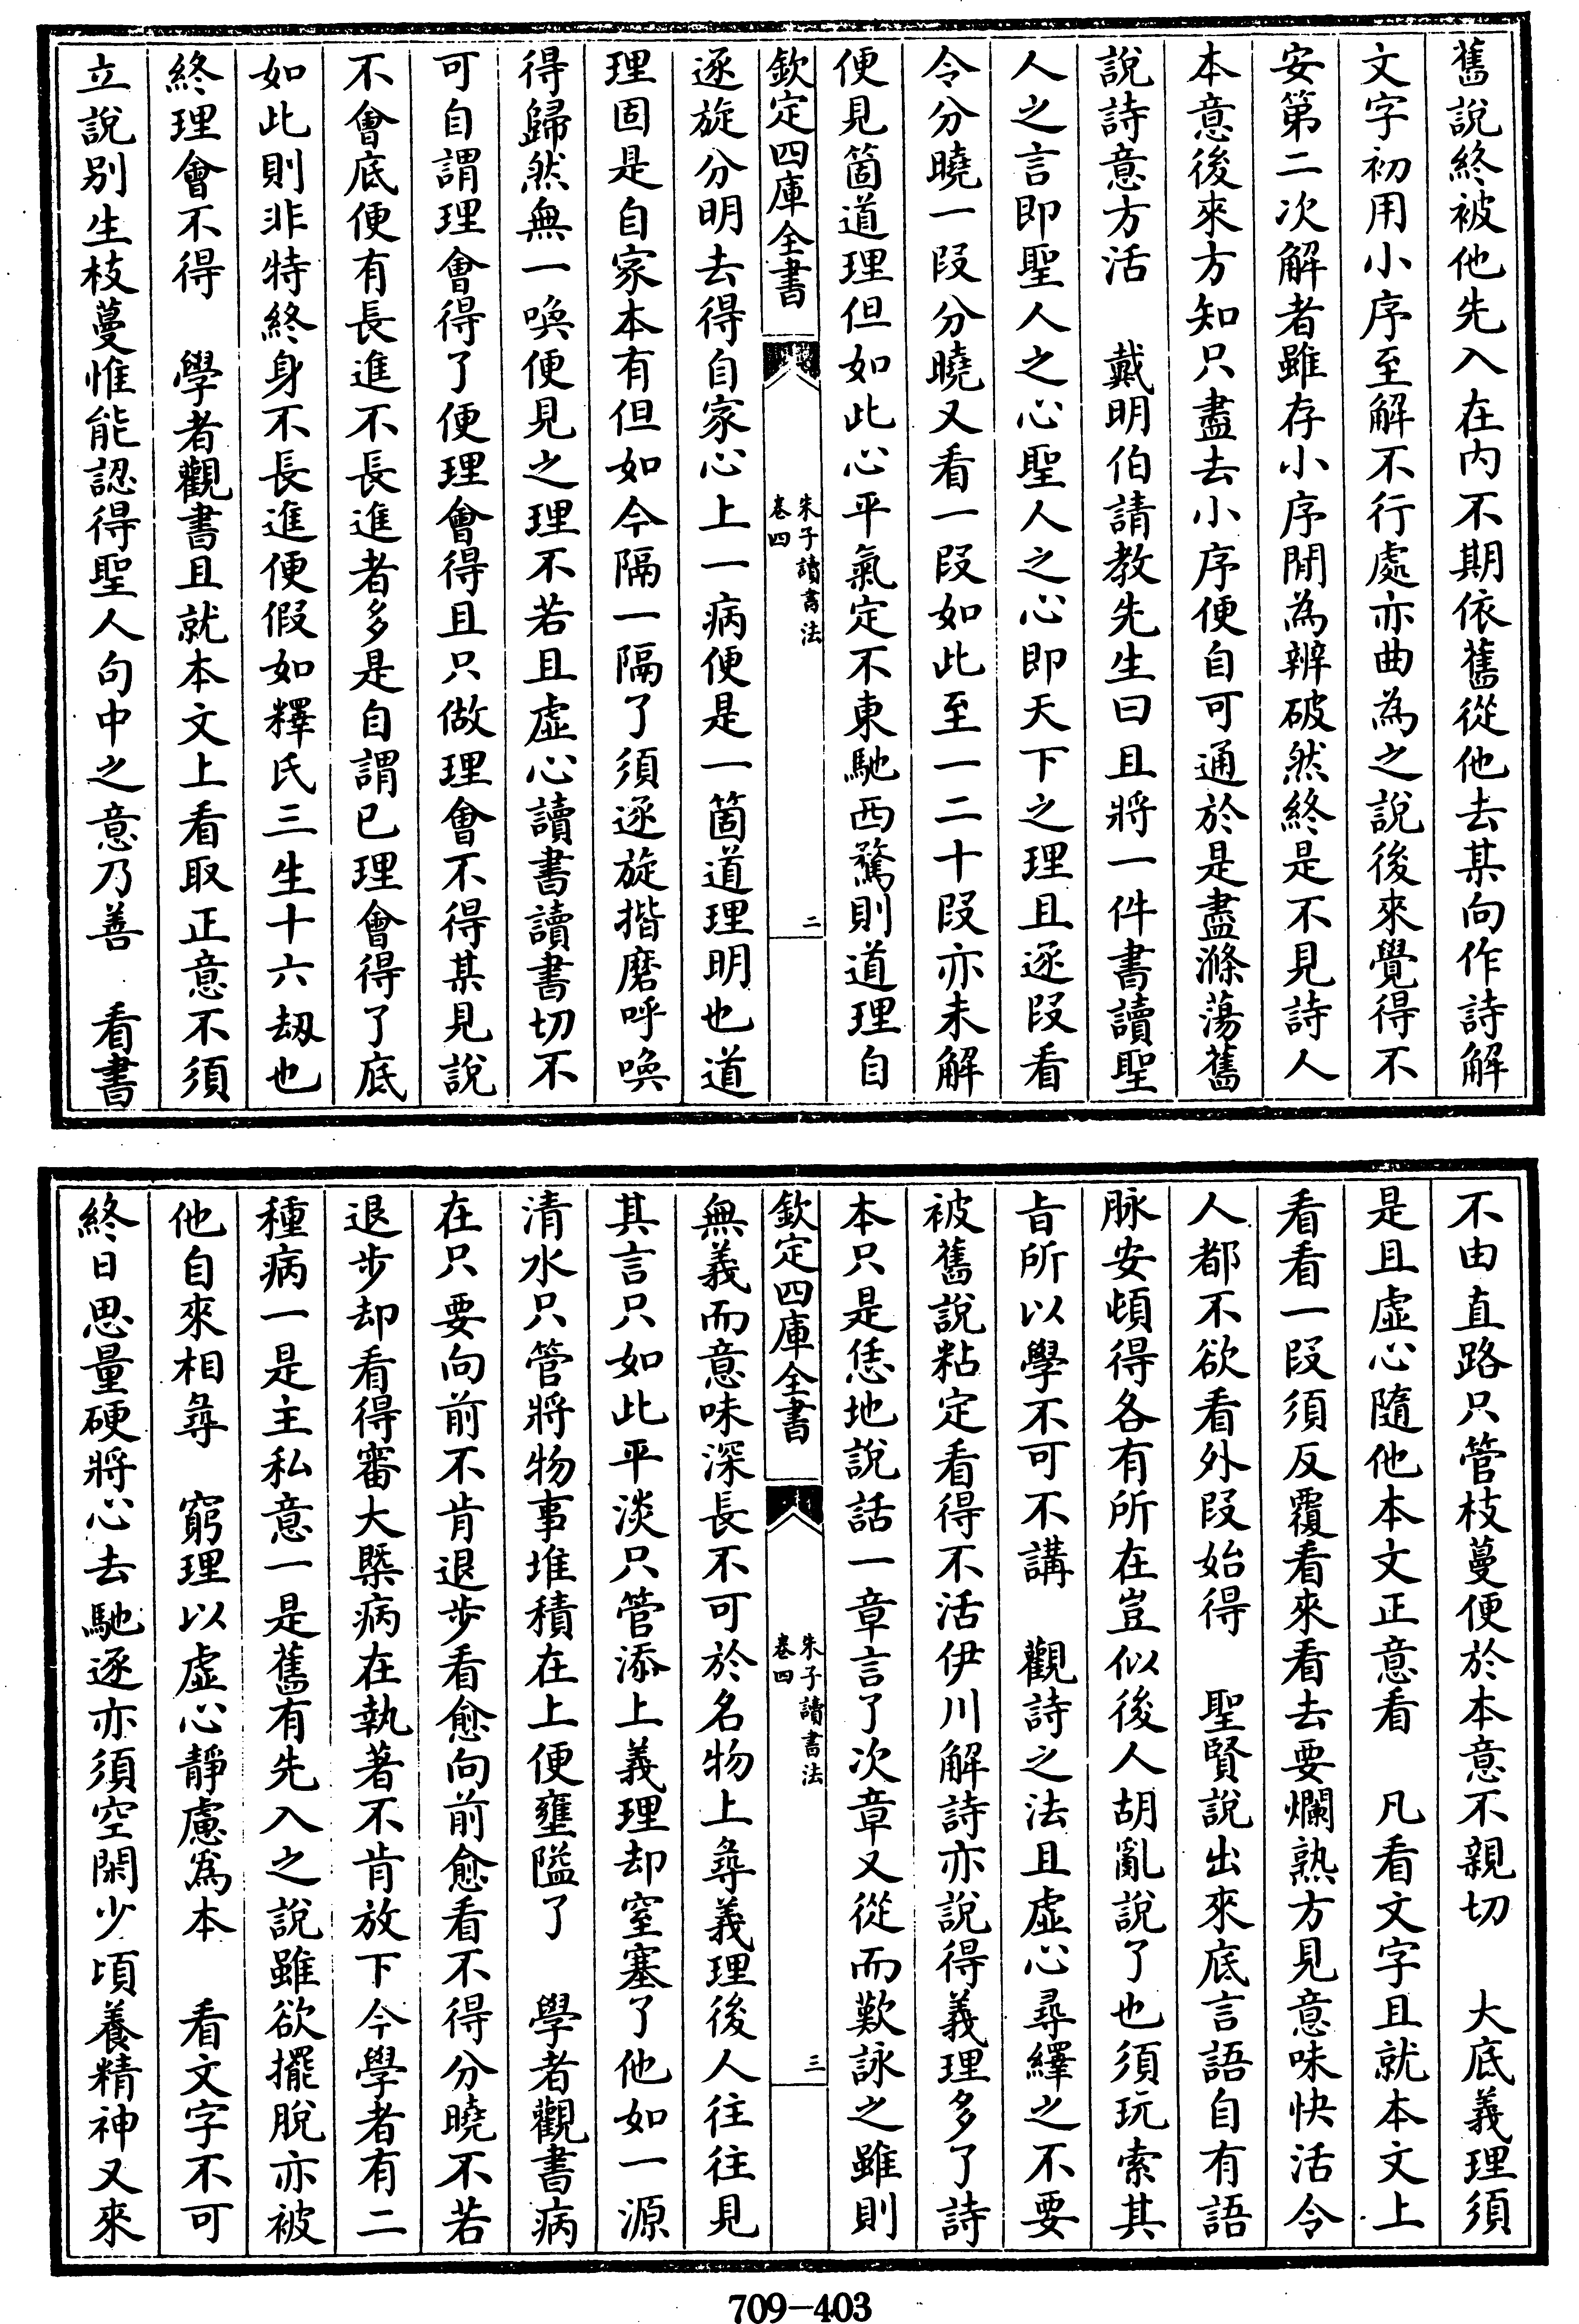 舊說終被他先入在内不期依舊從他去某向作詩解
文字初用小序至解不行處亦曲為之說後來覺得不
安第二次解者雖存小序間為辨破然終是不見詩人
本意後來方知只盡去小序便自可通於是盡滌蕩舊
說詩意方活　戴明伯請教先生曰且將一件書讀聖
人之言即聖人之心聖人之心即天下之理且逐段看
令分曉一段分曉又看一段如此至一二十段亦未解
便見箇道理但如此心平氣定不東馳西騖則道理自
欽定四庫全書
朱子讀書法
卷四
二
逐旋分明去得自家心上一病便是一箇道理明也道
理固是自家本有但如今隔一隔了須逐旋揩磨呼喚
得歸然無一喚便見之理不若且虛心讀書讀書切不
可自謂理會得了便理會得且只做理會不得某見說
不會底便有長進不長進者多是自謂已理會得了底
如此則非特終身不長進便假如釋氏三生十六劫也
終理會不得　學者觀書且就本文上看取正意不須
立說别生枝蔓惟能認得聖人句中之意乃善　看書
不由直路只管枝蔓便於本意不親切　大底義理須
是且虛心隨他本文正意看　凡看文字且就本文上
看看一段須反覆看來看去要爛熟方見意味快活令
人都不欲看外段始得　聖賢說出來底言語自有語
脉安頓得各有所在豈似後人胡亂說了也須玩索其
旨所以學不可不講　觀詩之法且虛心尋繹之不要
被舊說粘定看得不活伊川解詩亦說得義理多了詩
本只是恁地說話一章言了次章又從而歎詠之雖則
欽定四庫全書
朱子讀書法
卷四
三
無義而意味深長不可於名物上尋義理後人往往見
其言只如此平淡只管添上義理却窒塞了他如一源
清水只管將物事堆積在上便壅隘了　學者觀書病
在只要向前不肯退步看愈向前愈看不得分曉不若
退步却看得審大槩病在執著不肯放下今學者有二
種病一是主私意一是舊有先入之說雖欲擺脫亦被
他自來相尋　窮理以虛心靜慮爲本　看文字不可
終日思量硬將心去馳逐亦須空閑少頃養精神又來
709-403